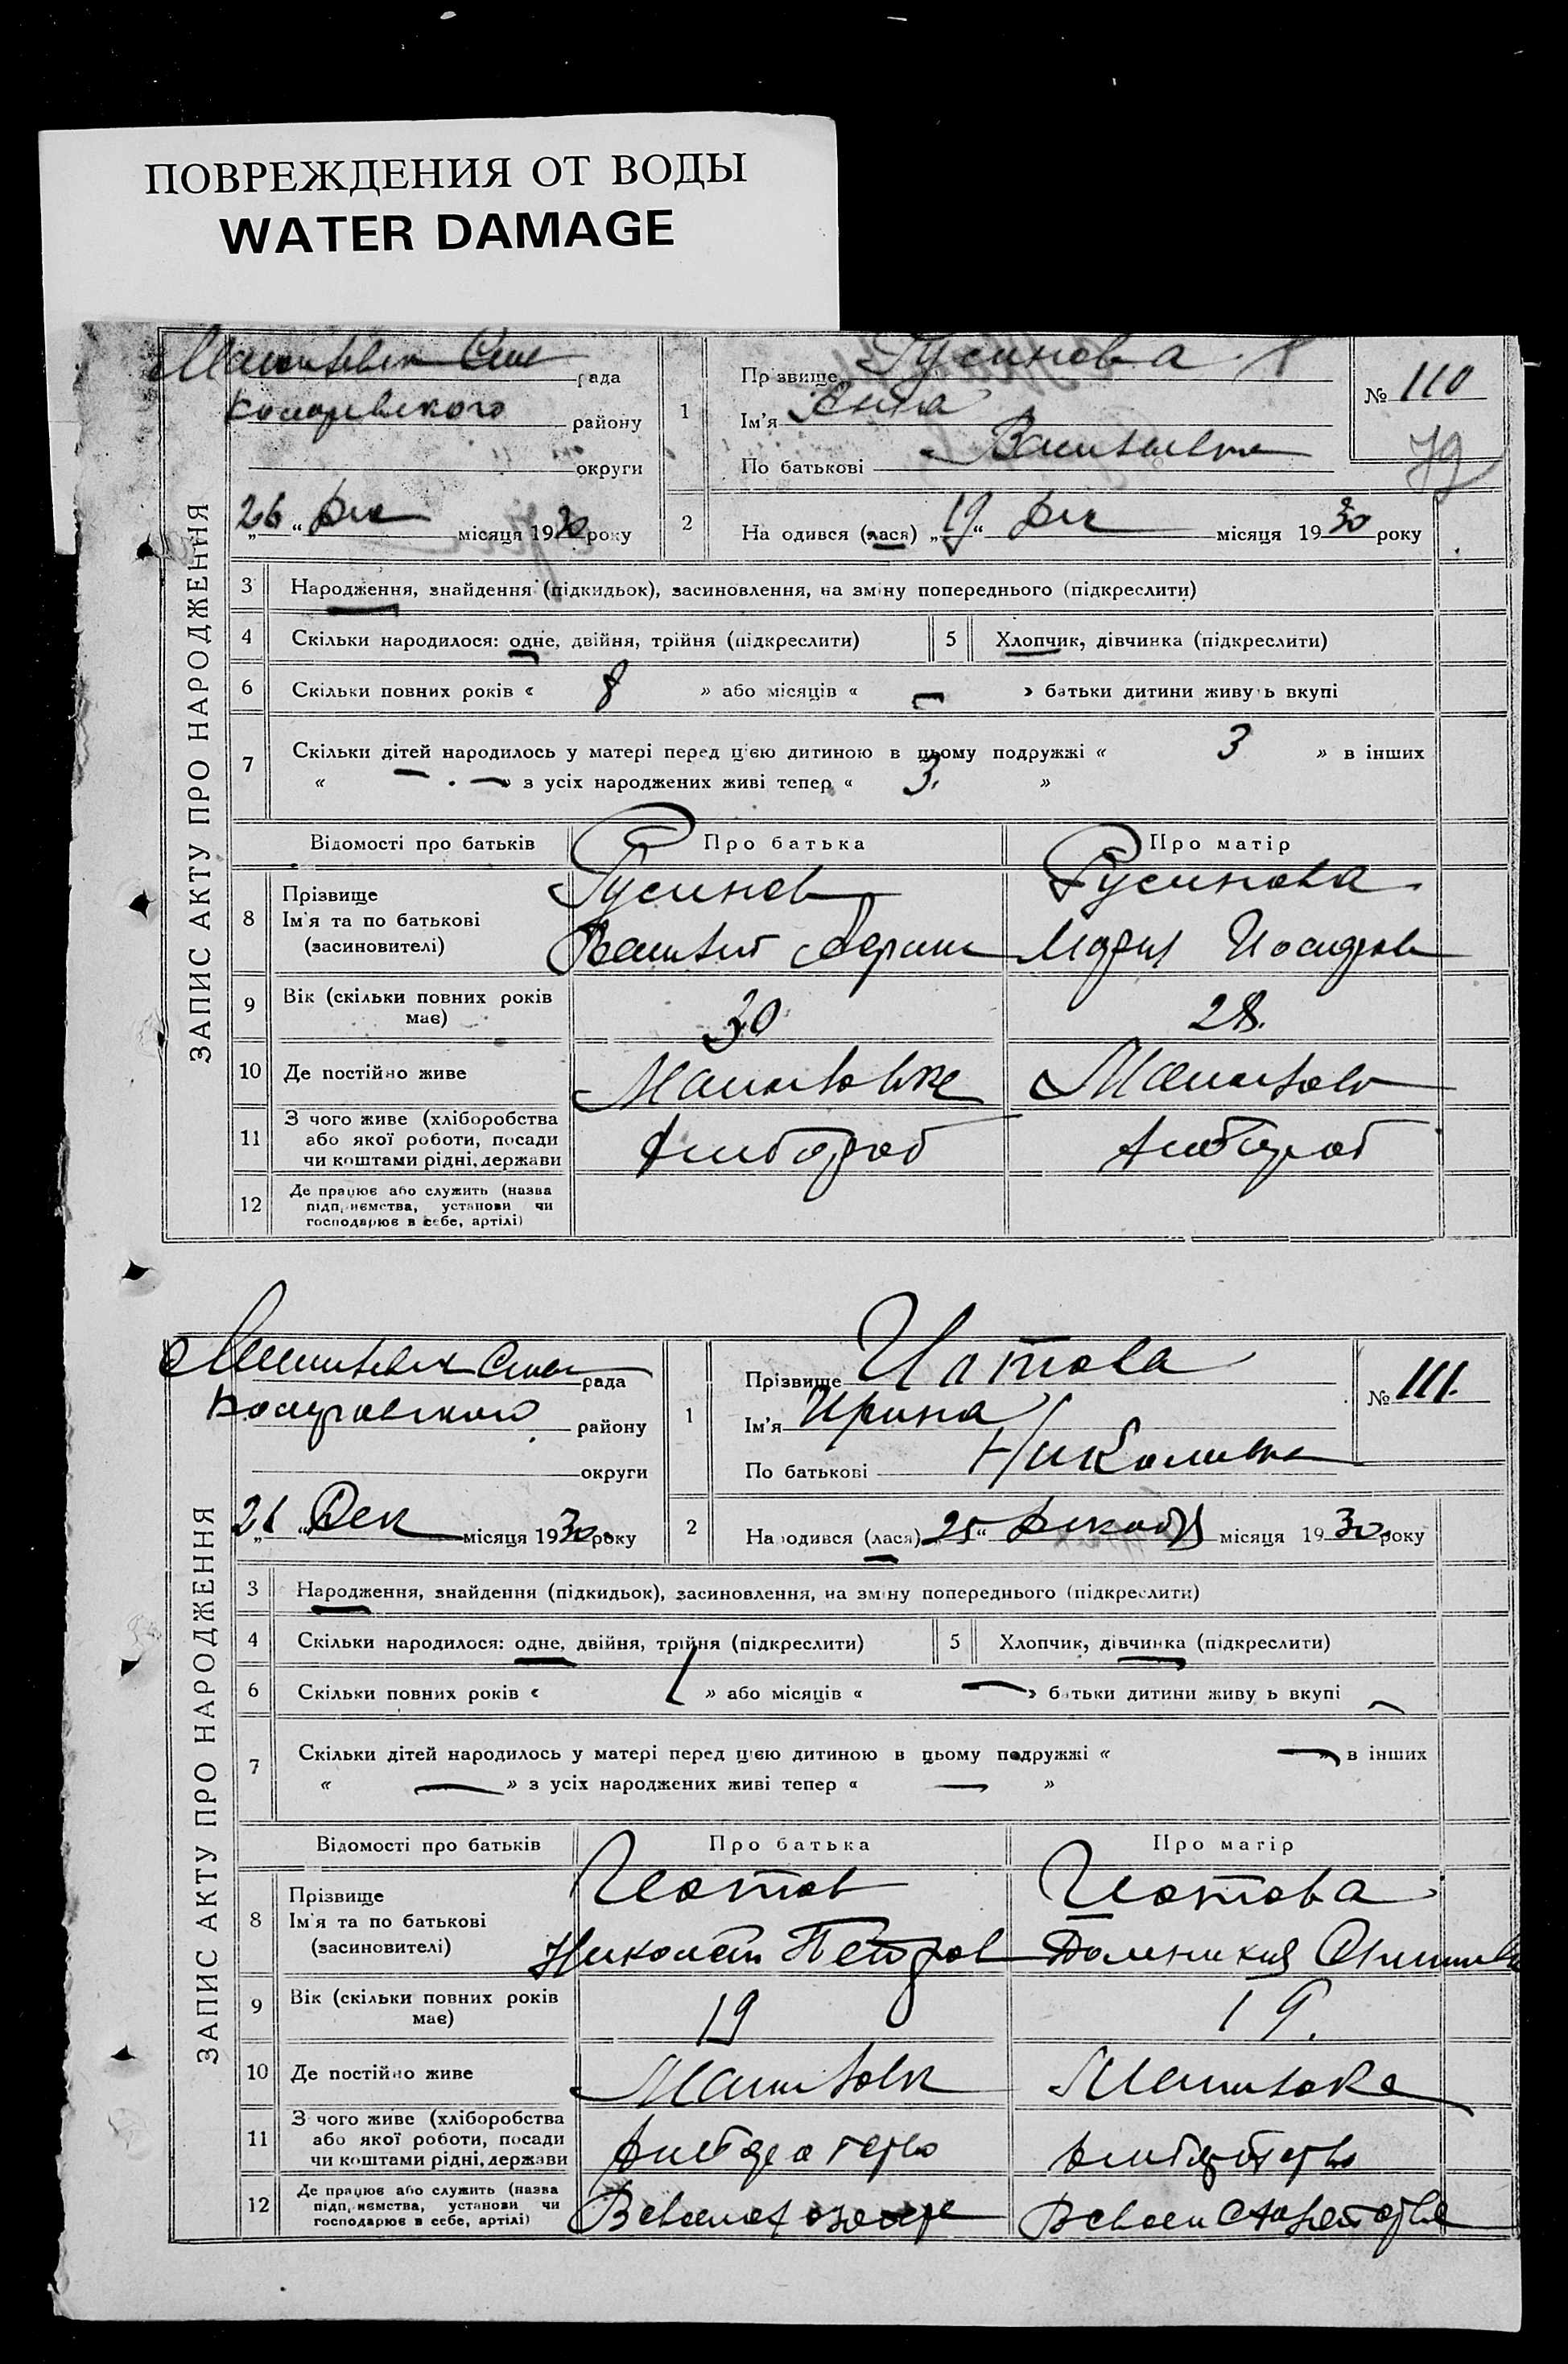 ПОВРЕЖДЕНИЯ ОТ ВОДЫ
WATER DAMAGE
ЗАПИС АКТУ ПРО НАРОДЖЕННЯ
рада
району
округи
„26“ Дек місяця 1930 року
1
Прізвище Русинова
Ім'я Анна
По батькові Васильевна
№ 110
79
2
Народився (лася) „19“ Дек місяця 1930 року
3 Народження, знайдення (підкидьок), засиновлення, на зміну попереднього (підкреслити)
4 Скільки народилося: одне, двійня, трійня (підкреслити)
5 Хлопчик, дівчинка (підкреслити)
6 Скільки повних років « 8 » або місяців « — » батьки дитини живуть вкупі
7 Скільки дітей народилось у матері перед цією дитиною в цьому подружжі « 3 » в інших
« — » з усіх народжених живі тепер « 3. »
Відомості про батьків Про батька Про матір
8 Прізвище Русинов Русинова
Ім'я та по батькові Василий Мария
(засиновителі)
9 Вік (скільки повних років має) 30 28.
10 Де постійно живе
11 З чого живе (хліборобства або якої роботи, посади чи коштами рідні, держави Хлебороб Хлебороб
12 Де працює або служить (назва підприємства, установи чи господарює в себе, артілі)
ЗАПИС АКТУ ПРО НАРОДЖЕННЯ
рада
району
округи
„26“ Дек місяця 1930 року
1
Прізвище
Ім'я Ирина
По батькові Николаевна
№ 111.
2
Народився (лася) „25“ Декабря місяця 1930 року
3 Народження, знайдення (підкидьок), засиновлення, на зміну попереднього (підкреслити)
4 Скільки народилося: одне, двійня, трійня (підкреслити)
5 Хлопчик, дівчинка (підкреслити)
6 Скільки повних років « 1 » або місяців « — » батьки дитини живуть вкупі
7 Скільки дітей народилось у матері перед цією дитиною в цьому подружжі « — » в інших
« — » з усіх народжених живі тепер « — »
Відомості про батьків Про батька Про матір
8 Прізвище
Ім'я та по батькові Николай Петров Домникия
(засиновителі)
9 Вік (скільки повних років має) 19 19.
10 Де постійно живе
11 З чого живе (хліборобства або якої роботи, посади чи коштами рідні, держави
12 Де працює або служить (назва підприємства, установи чи господарює в себе, артілі)